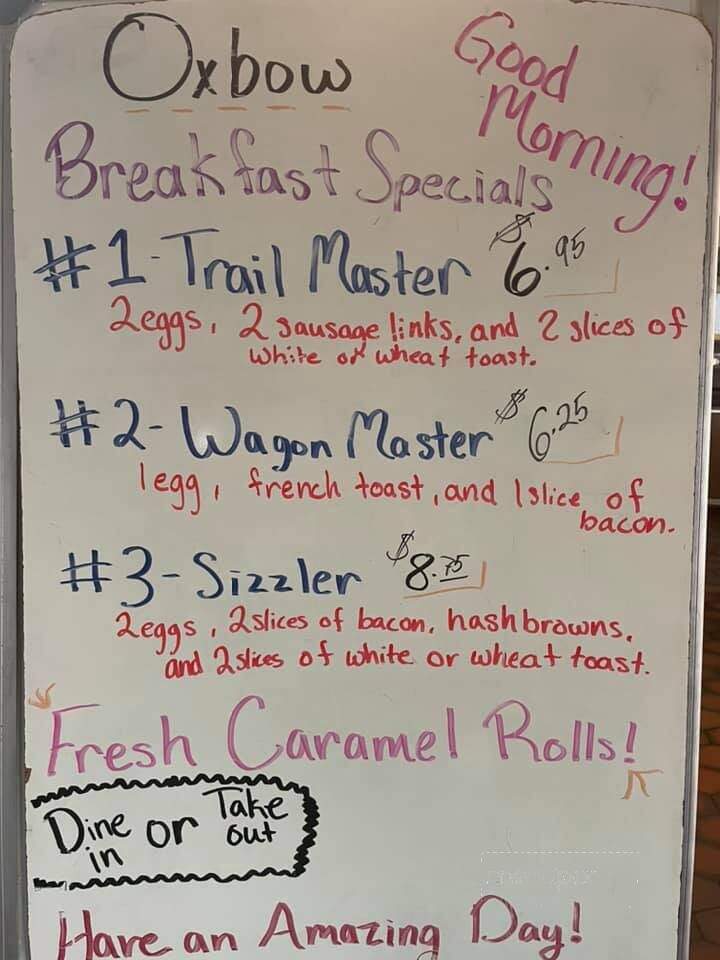 Oxbow
Good
Morning!
Breakfast Specials
#1-Trail Master $6.95
2eggs, 2 sausage links, and 2 slices of
white or wheat toast.
#2-Wagon Master $6.25
1egg, french toast, and 1slice of
bacon.
#3-Sizzler $8.75
2eggs, 2slices of bacon, hashbrowns,
and 2slices of white or wheat toast.
Fresh Caramel Rolls!
Dine in or Take out
Have an Amazing Day!